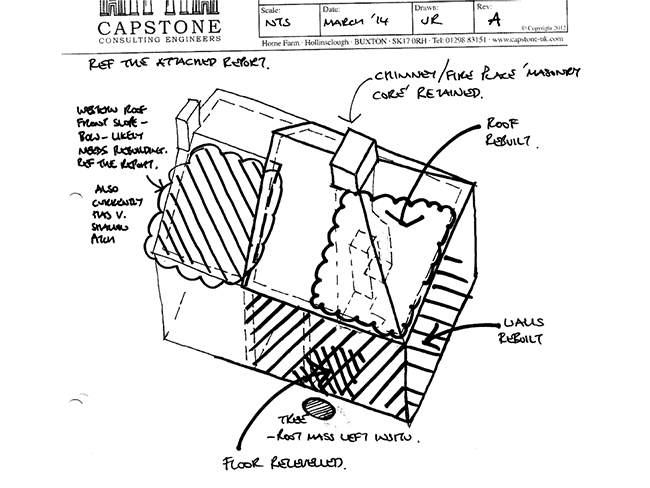 CAPSTONE
CONSULTING ENGINEERS
Scale:
NTS
Date:
MARCH '14
Drawn:
JR
Rev:
A
© Copyright 2012
Home Farm · Hollinsclough · BUXTON · SK17 0RH · Tel: 01298 83151 · www.capstone-uk.com
REF THE ATTACHED REPORT.
CHIMNEY/FIRE PLACE 'MASONRY
CORE' RETAINED.
WESTERN ROOF
FRONT SLOPE -
BOW - LIKELY
NEEDS REBUILDING.
REF THE REPORT.
ALSO
CURRENTLY
HAS V.
SHALLOW
ROOF
REBUILT.
WALLS
REBUILT
TREE
- ROOT MASS LEFT INSITU.
FLOOR RELEVELLED.